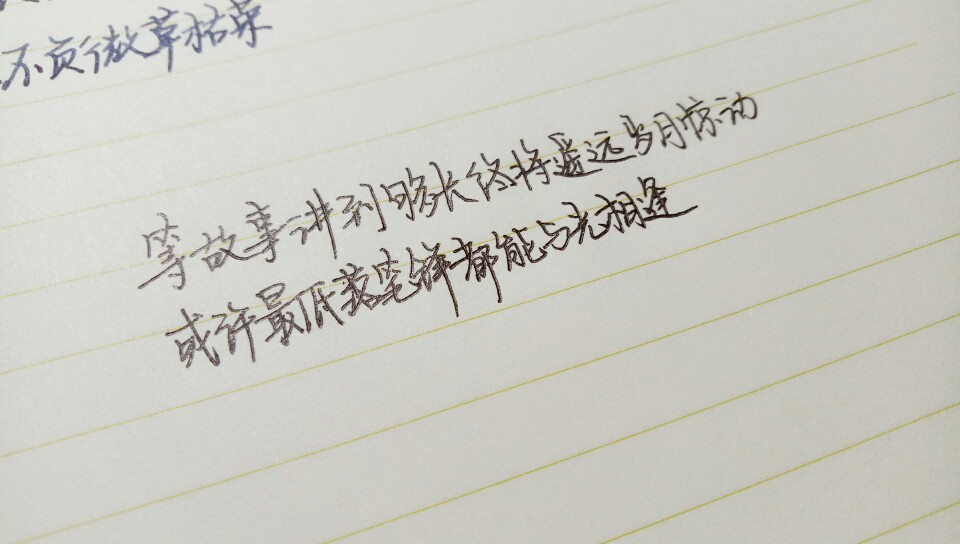 不负微草枯荣
等故事讲到够长终将遥远岁月惊动
或许最低落笔锋都能与光相逢